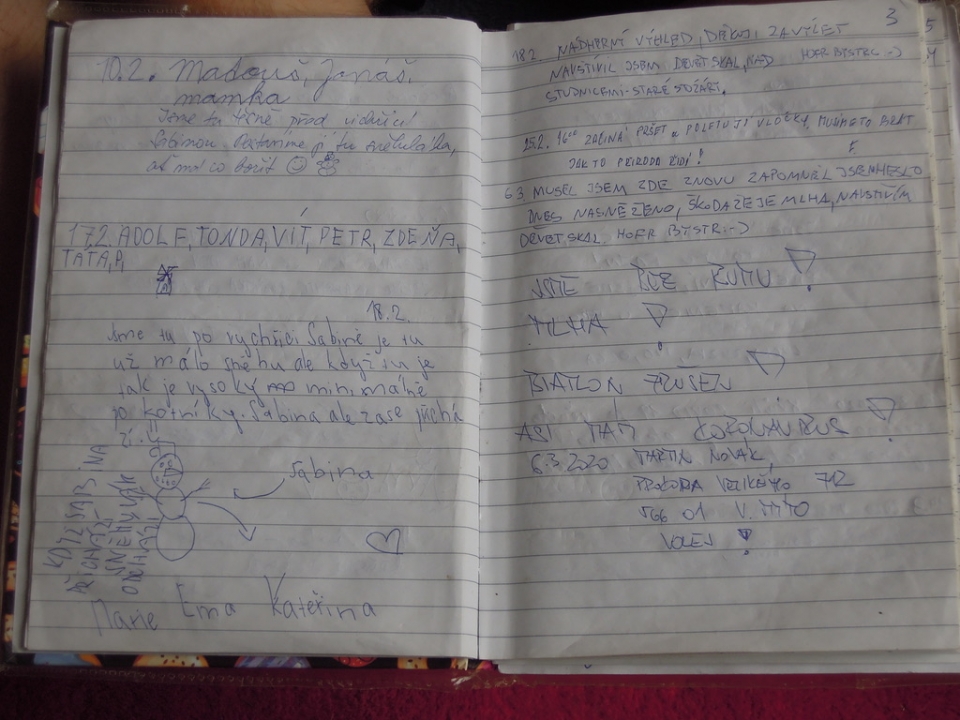 10.2. Matouš, Jonáš,
mamka
Jsme tu těsně před vichřicí
Sabinou. Postavíme jí tu sněhuláka,
ať má co bořit
17.2. ADOLF, TONDA, VÍT, PETR, ZDEŇA,
TAŤA, P,
18.2.
Jsme tu po vychřici Sabině je tu
už málo sněhu ale když tu je
tak je vysoký minimálně
po kotníky. Sabina ale zase fučí
Sabina
KDYŽ SABINA
PŘICHÁZÍ
SNĚHULÁK
ODCHÁZÍ
Marie Ema Kateřina
3
18.2. NÁDHERNÝ VÝHLED, DĚKUJI ZA VÝLET
NAVŠTÍVIL JSEM DEVĚT SKAL, NAD HOFR BYSTRC :-)
STUDNICEMI - STARÉ STOŽÁRY.
25.2. 16⁰⁰ ZAČÍNÁ PRŠET A POLETUJÍ VLOČKY, MUSÍME TO BRÁT
JAK TO PŘÍRODA ŘÍDÍ!
6.3. MUSEL JSEM ZDE ZNOVU ZAPOMNĚL JSEM HESLO
DNES NASNĚŽENO, ŠKODA ŽE JE MLHA, NAVŠTÍVÍM
DEVĚT SKAL. HOFR BYSTR. :-)
JSME BEZ RUMU!
MLHA!
BIATLON ZRUŠEN!
ASI MÁM KORONAVIRUS!
6.3.2020 MARTIN NOVÁK,
PROKOPA VELIKÉHO 712
566 01 V. MÝTO
VOLEJ!